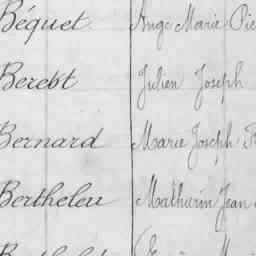 Béquet Ange Marie Pie
Berebt Julien Joseph
Bernard Marie Joseph
Bertheleu Mathurin Jean